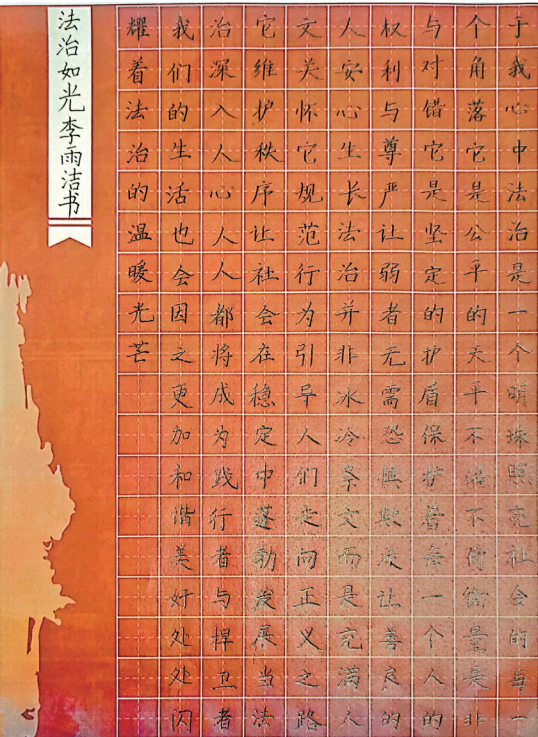 于我心中法治是一个明珠照亮社会的每一
个角落它是公平的天平不偏不倚衡量是非
与对错它是坚定的护盾保护着每一个人的
权利与尊严让弱者无需恐惧欺凌让善良的
人安心生长法治并非冰冷条文而是充满人
文关怀它规范行为引导人们走向正义之路
它维护秩序让社会在稳定中蓬勃发展当法
治深入人心人人都将成为践行者与捍卫者
我们的生活也会因之更加和谐美好处处闪
耀着法治的温暖光芒
法治如光李雨洁书